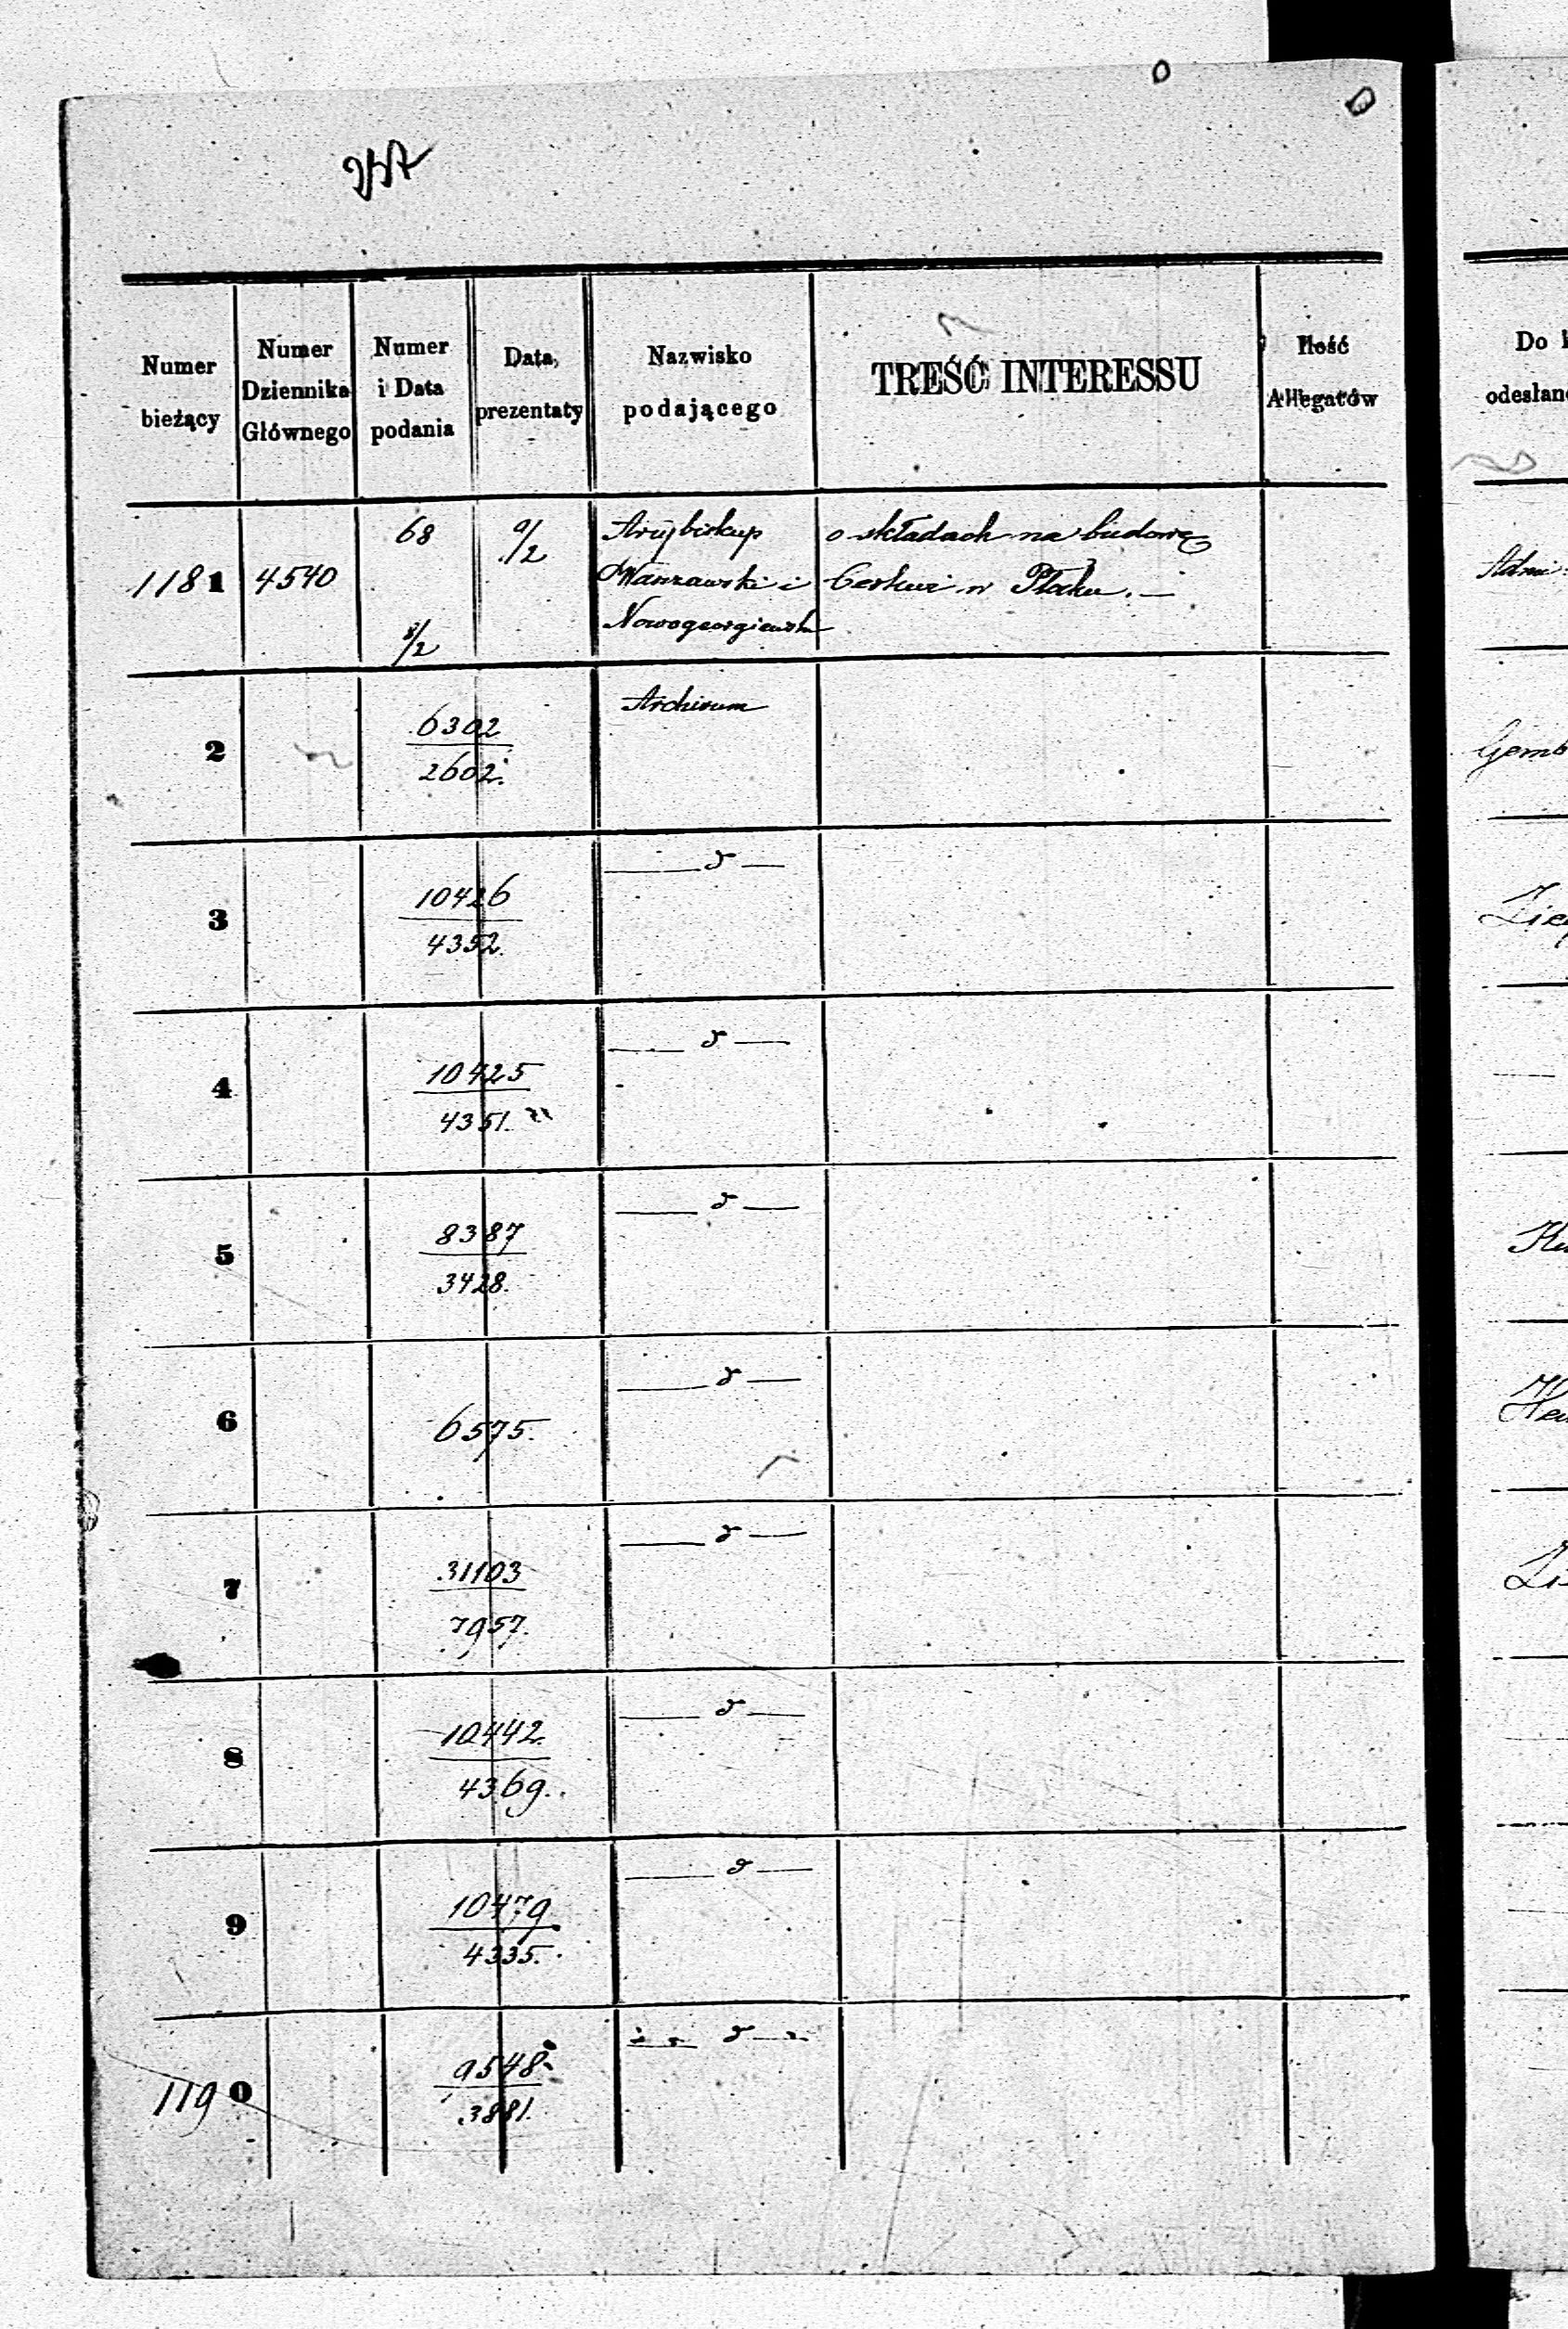 257
Numer bieżący
Numer Dziennika Głównego
Numer i Data podania
Data prezentaty
Nazwisko podającego
TREŚĆ INTERESSU
Ilość Allegatów
Do
odesłan
1181 4540 68 8/2 9/2 Arcybiskup Warszawski i Nowogeorgiewski o składach na budowę Cerkwi w Płocku. —
2 6302/2602. Archivum
3 10426/4352. — d —
4 10425/4351. — d —
5 8387/3428. — d —
6 6575. — d —
7 31103/7957. — d —
8 10442/4369. — d —
9 10479/4335. — d —
1190 9548/3881. — d —